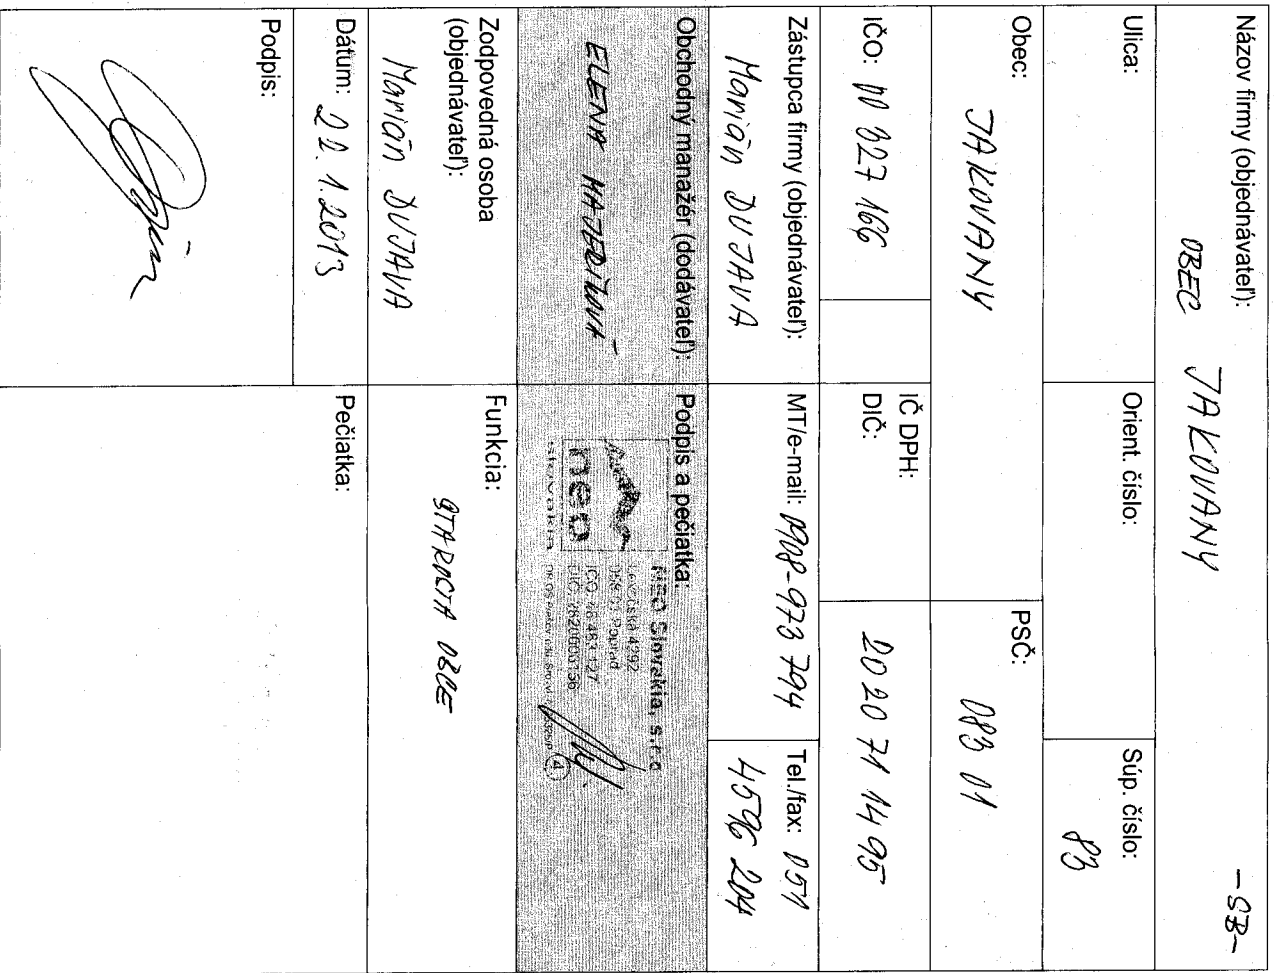 Názov firmy (objednávateľ):
OBEC JAKOVANY -SB-
Ulica:
Orient. číslo:
Súp. číslo:
83
Obec:
JAKOVANY
PSČ:
083 01
IČO: 00 327 166
IČ DPH:
DIČ:
20 20 71 14 95
Zástupca firmy (objednávateľ):
Marián DUJAVA
MT/e-mail: 0908-973 794
Tel./fax: 051
4596 204
Obchodný manažér (dodávateľ):
ELENA
Podpis a pečiatka:
neo
slovakia
NEO Slovakia, s.r.o
Levočská 4292
058 01 Poprad
Zodpovedná osoba
(objednávateľ):
Marián DUJAVA
Funkcia:
STAROSTA OBCE
Dátum: 22.1.2013
Podpis:
Pečiatka: